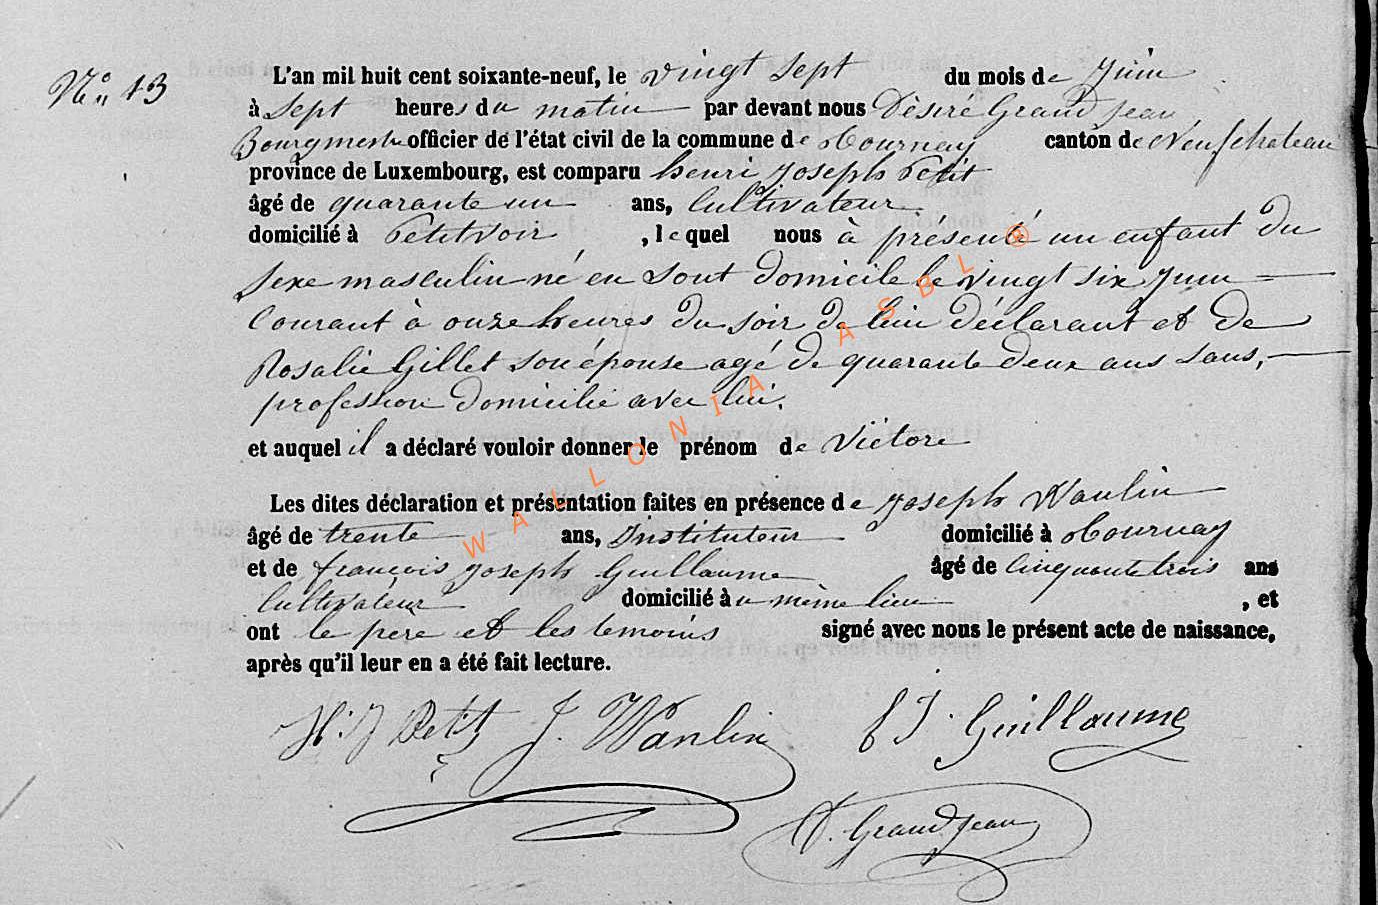 N° 13
L'an mil huit cent soixante-neuf, le vingt sept du mois de Juin
à sept heures du matin par devant nous Désiré Grand Jean
Bourgmestre officier de l'état civil de la commune de Tournay canton de Neufchateau
province de Luxembourg, est comparu henri Joseph Petit
âgé de quarante un ans, Cultivateur
domicilié à Petitvoir , lequel nous à présenté un enfant du
sexe masculin né en sont domicile le vingt six Juin
Courant à onze heures du soir de lui déclarant et de
Rosalie Gillet son épouse agé de quarante deux ans sans,
profession domicilié avec lui.
et auquel il a déclaré vouloir donner le prénom de Victore
Les dites déclaration et présentation faites en présence de Joseph Wanlin
âgé de trente ans, Instituteur domicilié à Tournay
et de françois Joseph Guillaume âgé de Cinquante trois ans
Cultivateur domicilié au même lieu , et
ont le père et les temoins signé avec nous le présent acte de naissance,
après qu'il leur en a été fait lecture.
H. J Petit J. Wanlin f J. Guillaume
D. Grandjean
WALLONIA ASBL ®